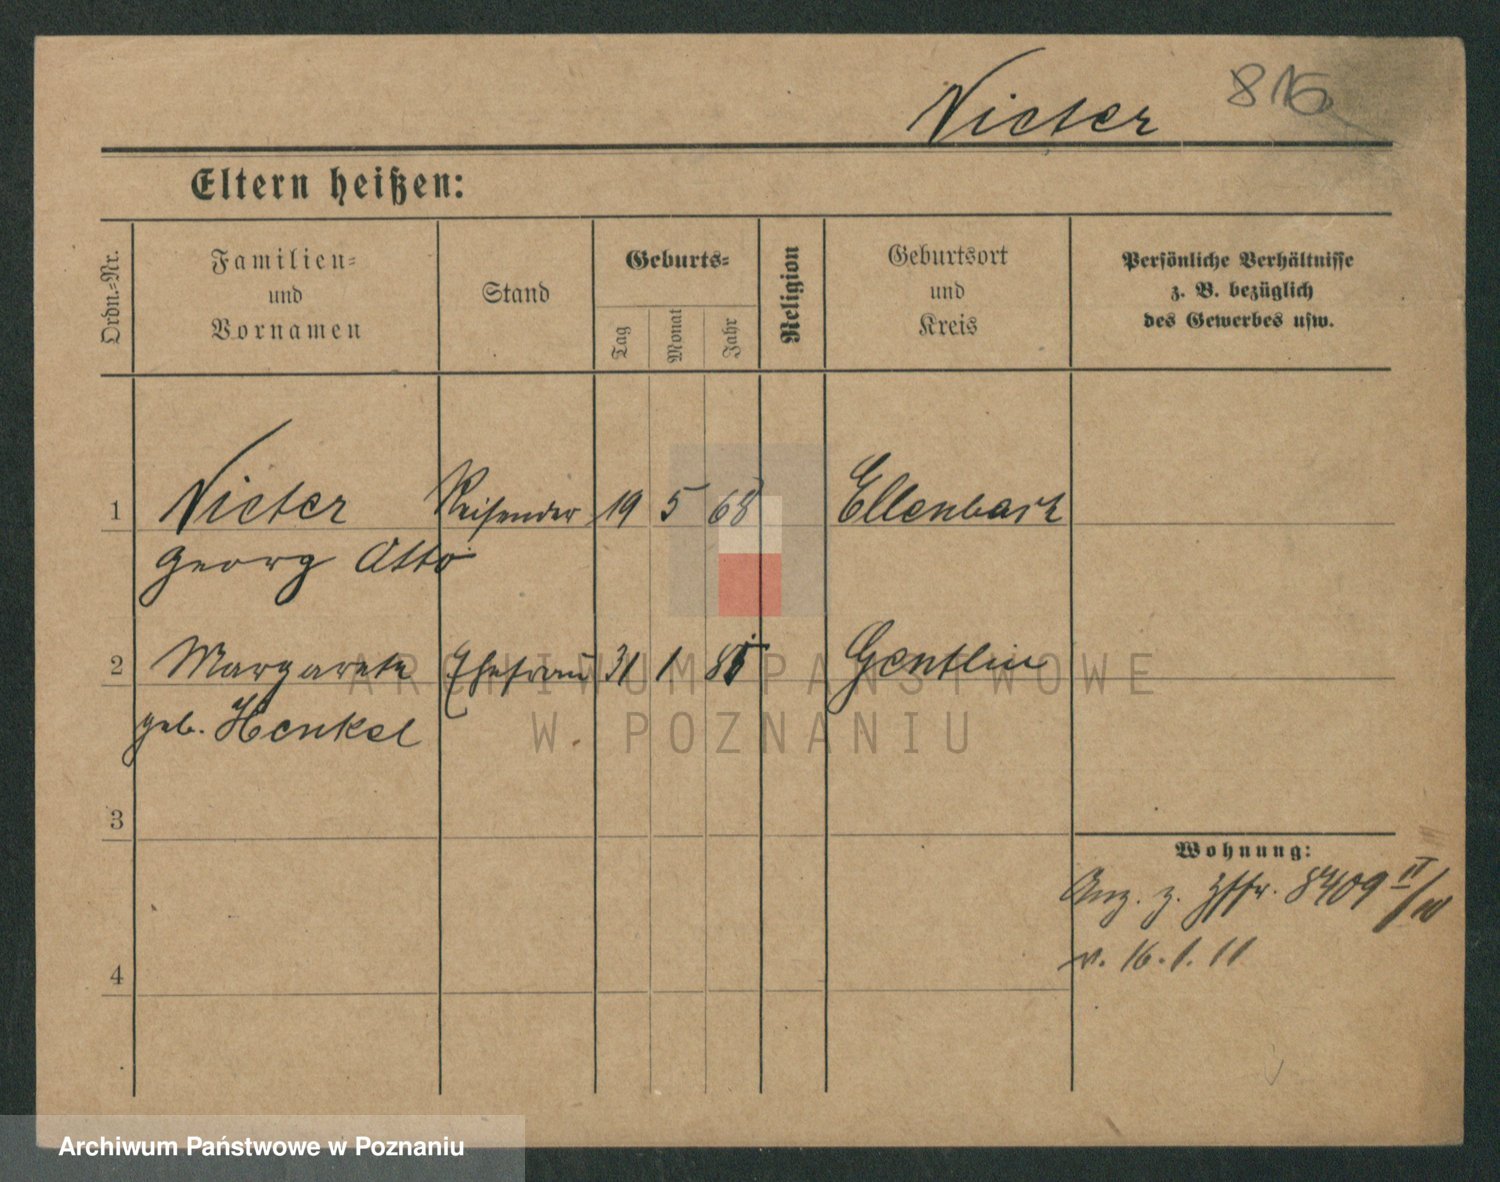 Victer 816
Eltern heißen:
Ordn.=Nr.
Familien=
und
Vornamen
Stand
Geburts=
Tag
Monat
Jahr
Religion
Geburtsort
und
Kreis
Persönliche Verhältnisse
z. B. bezüglich
des Gewerbes usw.
1 Victer Reisender 19 5 68 Ellenbach
Georg Otto
2 Margarete Ehefrau 31 1 85 Genthin
geb. Henkel
3
4
Wohnung:
Anz. z. 8409 II/10
v. 16.1.11
ARCHIWUM PAŃSTWOWE
W POZNANIU
Archiwum Państwowe w Poznaniu